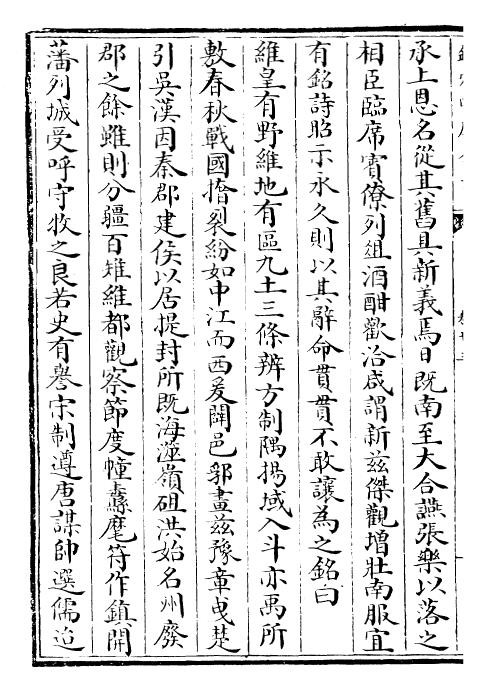 承上恩名從其舊具新義焉日既南至大合讌張樂以落之
相臣臨席賓僚列俎酒酣歡洽咸謂新茲傑觀增壯南服宜
有銘詩昭示永久則以其辭命貫貫不敢讓為之銘曰
維皇有野維地有區九土三條辨方制隅揚域入斗亦禹所
敷春秋戰國擔裂紛如中江而西爰闢邑郛畫茲豫章曵楚
引吳漢因秦郡建侯以居提封所既海澨嶺砠洪始名州廢
郡之餘雖則分疆百雉維都觀察節度幢纛麾符作鎮開
藩列城受呼守牧之良若史有譽宋制遵唐謀帥選儒迨